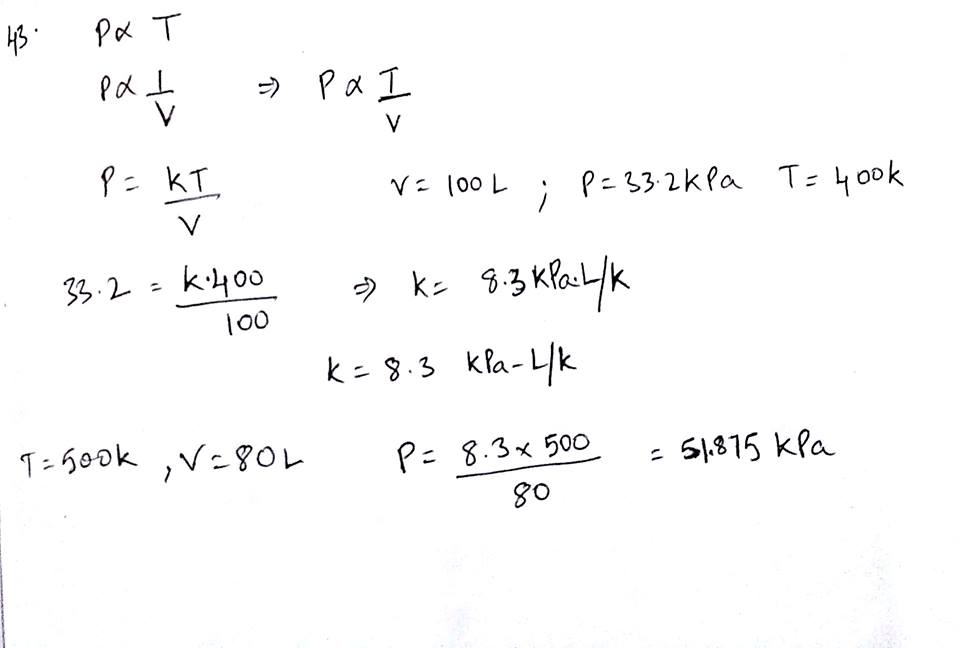 43. P∝ T
P∝ 1/V ⇒ P∝ T/V
P = kT/V V = 100 L ; P = 33.2 kPa T = 400k
33.2 = k·400/100 ⇒ k = 8.3 kPa·L/k
k = 8.3 kPa-L/k
T = 500k , V = 80L P = 8.3 x 500/80 = 51.875 kPa